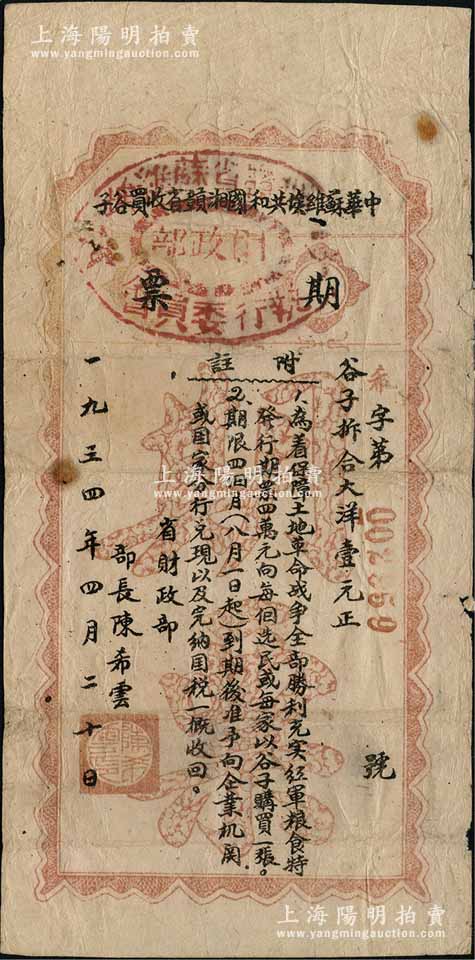 上海陽明拍賣
www.yangmingauction.com
中華蘇維埃共和國湘贛省收買谷子
期票
字第
號
谷子折合大洋壹元正
附註
1.為着保障土地革命战争全部勝利充实红軍粮食特
發行期票四萬元向每個选民或每家以谷子購買一張。
2.期限四個月(八月一日起)到期後准予向企業机関
或国家分行兑現以及完納国税一概收回。
省財政部
部長陳希雲
一九三四年四月二十日
上海陽明拍賣
www.yangmingauction.com
上海陽明拍賣
www.yangmingauction.com